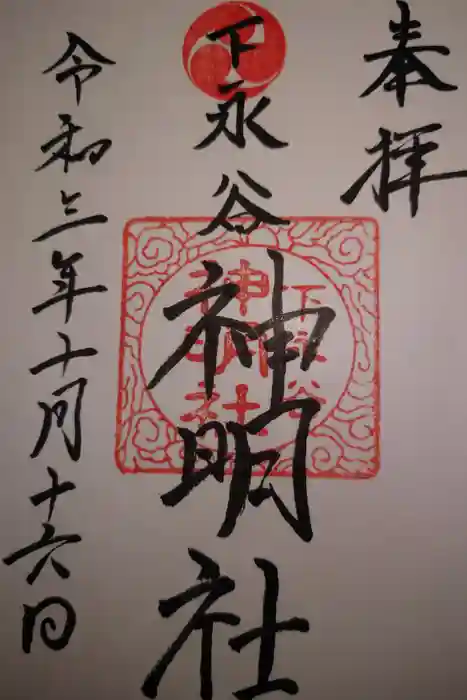 奉拝
下永谷
神明社
令和三年十月十六日
下永谷
神明社